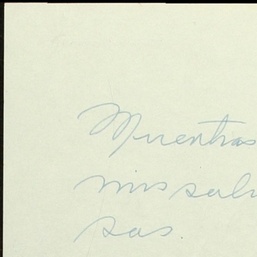 Mientras
mis sali
sas.